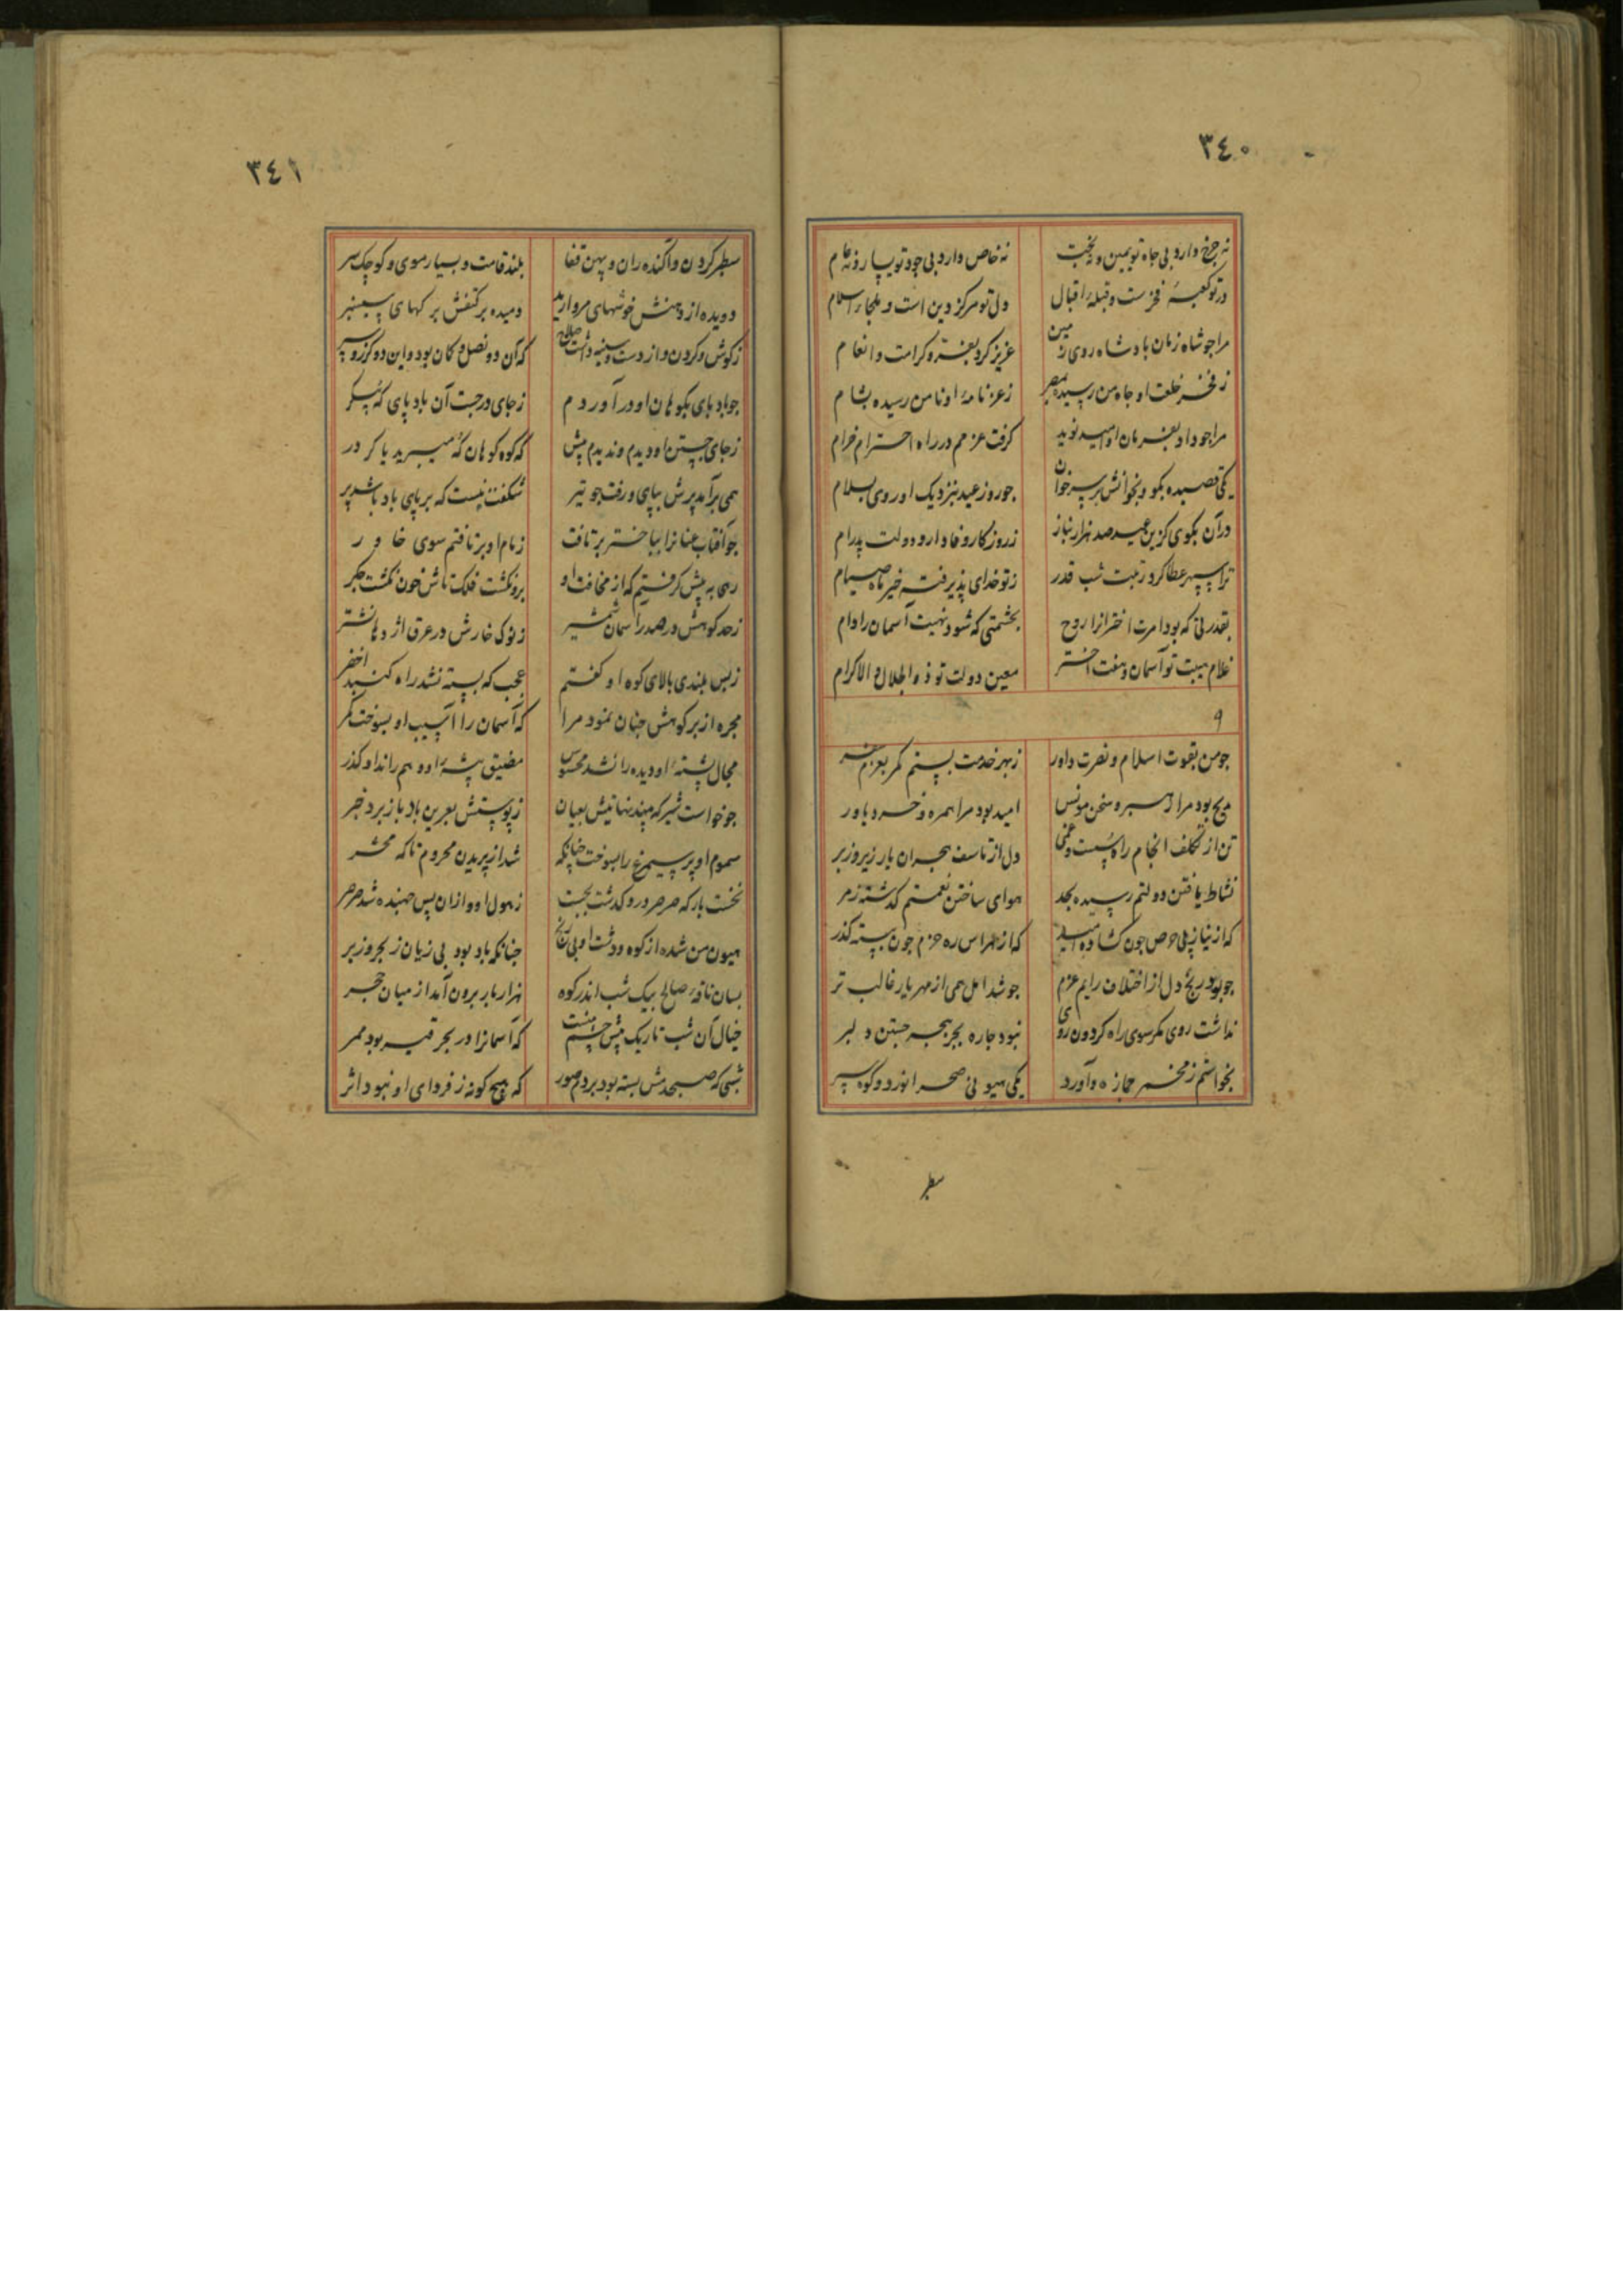 ٣٤٠
نه چرخ دارد بی جاه تو یمین و نه بخت نه خاص دارد بی جود تو یسار و نه عام
در تو کعبهٔ فخرست و قبلهٔ اقبال ولی تو مرکز دین است و ملجاء اسلام
مرا جو شاه زمان بادشاه روی زمین عزیز کرد بعز و کرامت و انعام
ز فخر خلعت او جاه من رسیده بمصر ز عز نامهٔ او نا من رسیده بشام
مرا جو داد بفرمان او امید نوید کرفت عزمم در راه احترام خرام
یکی قصیده بکو و بخوانش بر سر خوان جو روز عید بنزدیک او روی بسلام
در آن بکوی کزین عید صد هزار بناز ز روزکار وفادار و دولت پدرام
ترا سپهر عطا کرد زینت شب قدر ز تو خدای پذیرفته خیر ماه صیام
بقدرتی که بود امرت اخترانرا روح بحشمتی که شود نهیت آسمان را دام
غلام هیبت تو آسمان و هفت اختر معین دولت تو ذو الجلال و الاکرام
٩
جو من بقوت اسلام و نصرت داور ز بهر خدمت بستم کمر بعزم سفر
مدیح بود مرا رهبر و سخن مونس امید بود مرا همره و خرد یاور
تن از تکلف انجام راه سست و غمی دل از تاسف هجران یار زیر و زبر
نشاط یافتن دولتم رسیده بجد هوای ساختن نعمتم کذشته ز مر
که از نیاز پی حرص جون کشاده امید که از هراس ره حزم جون ببسته کذر
جو بود رنج دل از اختلاف رایم عزم جو شد امل همی از مهر یار غالب تر
نداشت روی مکر سوی راه کردون روی نبود جاره بجز هجر جستن دلبر
بخواستم ز مخمر جمازه و آورد یکی هیونی صحرا نورد و کوه سپر
سطبر
٣٤١
سطبر کردن و آکنده ران و پهن قفا بلند قامت و بسیار موی و کوچک سر
دویده از دهنش خوشهای مروارید دمیده بر کتفش برکهای سیسنبر
ز کوش و کردن و از دست و سینه داشت سلاح که آن دو نصل و کمان بود و این دو کرز و سپر
جو باد پای بکوهان او در آوردم ز جای در جست آن باد پای که پیکر
ز جای جستن او دیدم و ندیدم پیش که کوه کوهان که میبرید یا کردر
همی برآمد پرش بپای و رفت جو تیر شکفت نیست که بر پای باد باشد پر
جو آفتاب عنانرا بباختر بر تافت زمام او بر تافتم سوی خاور
رهی به پیش کرفتم که از مخافت او برو نکشت فلک تاش خون نکشت جکر
ز حد کوهش در صدر آسمان شمشیر ز نوک خارش در عرق اژدها نشتر
ز بس بلندی بالای کوه او کفتم عجب که بسته نشد راه کنبد اخضر
مجره از بر کوهش جنان نمود مرا که آسمان را آسیب او بسوخت مکر
مجال پشتهٔ او دیده را نشد محسوس مضیق بیشهٔ او وهم را نداد کذر
جو خواست شیر که بیند نهانیش بعیان ز پوستش بعرین باد باز برد خبر
سموم او پر سیمرغ را بسوخت چنانکه شد از پریدن محروم تا که محشر
نخست بار که صرصر درو کذشت بجست ز هول او و از ان پس جهنده شد صرصر
هیون من شده از کوه و دشت او بی رنج جنانکه باد بود بی زیان ز بحر و ز بر
بسان ناقهٔ صالح بیک شب اندر کوه هزار بار برون آمد از میان حجر
خیال آن شب تاریک پیش چشم منست که آسمانرا در بحر قیر بود ممر
شبی که صبحدمش بسته بود بر دم صور که هیچ کونه ز فردای او نبود اثر